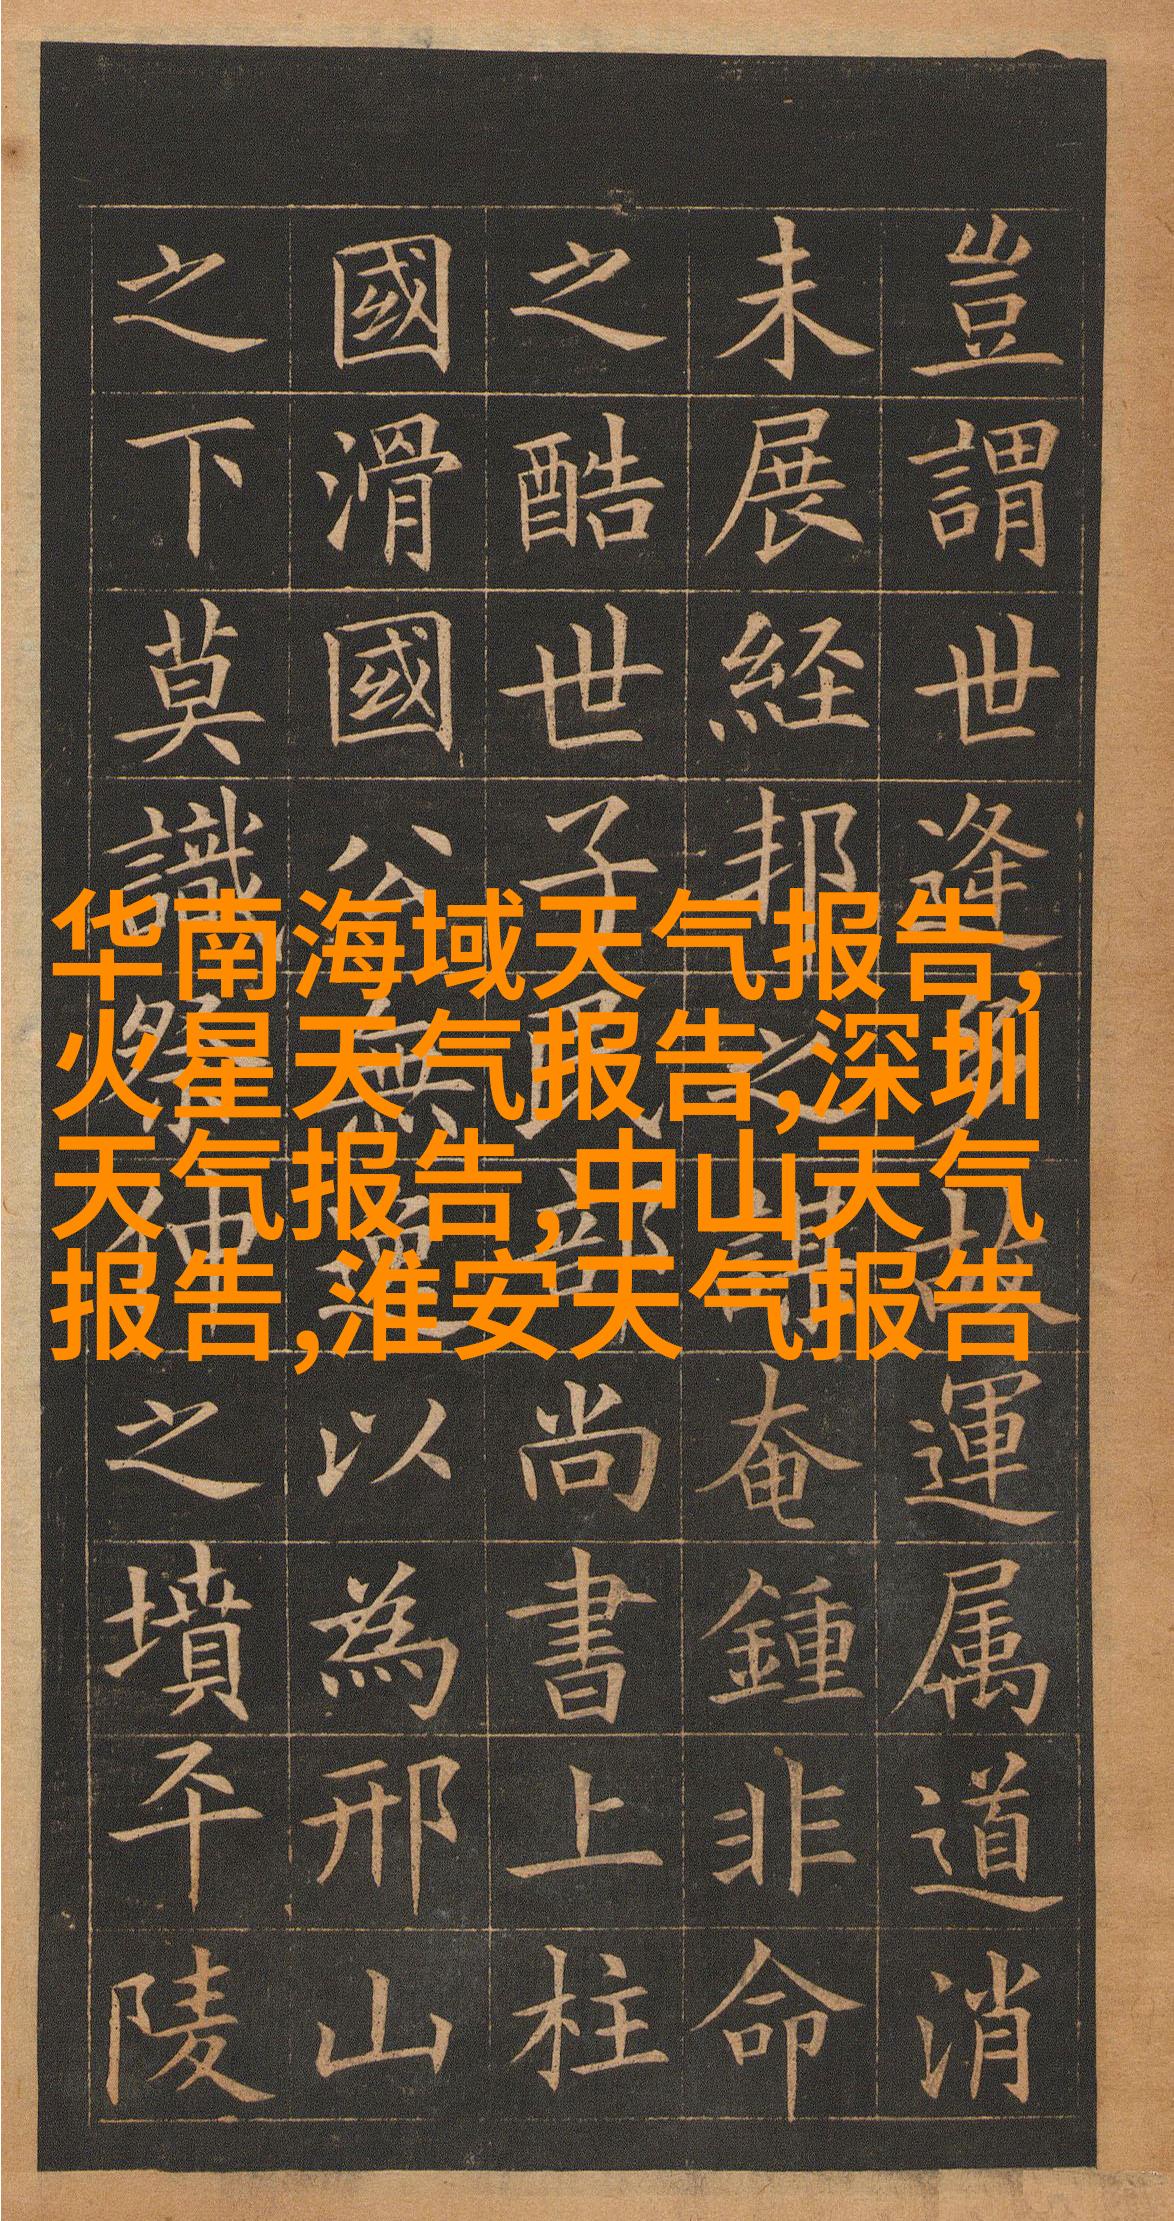 豈謂世逢多故運属道消
未展経邦之謀奄鍾非命
之酷世子民部尚書上柱
國滑國公無逸以為邢山
之下莫識祭仲之墳平陵
华南海域天气报告,
火星天气报告,深圳
天气报告,中山天气
报告,淮安天气报告